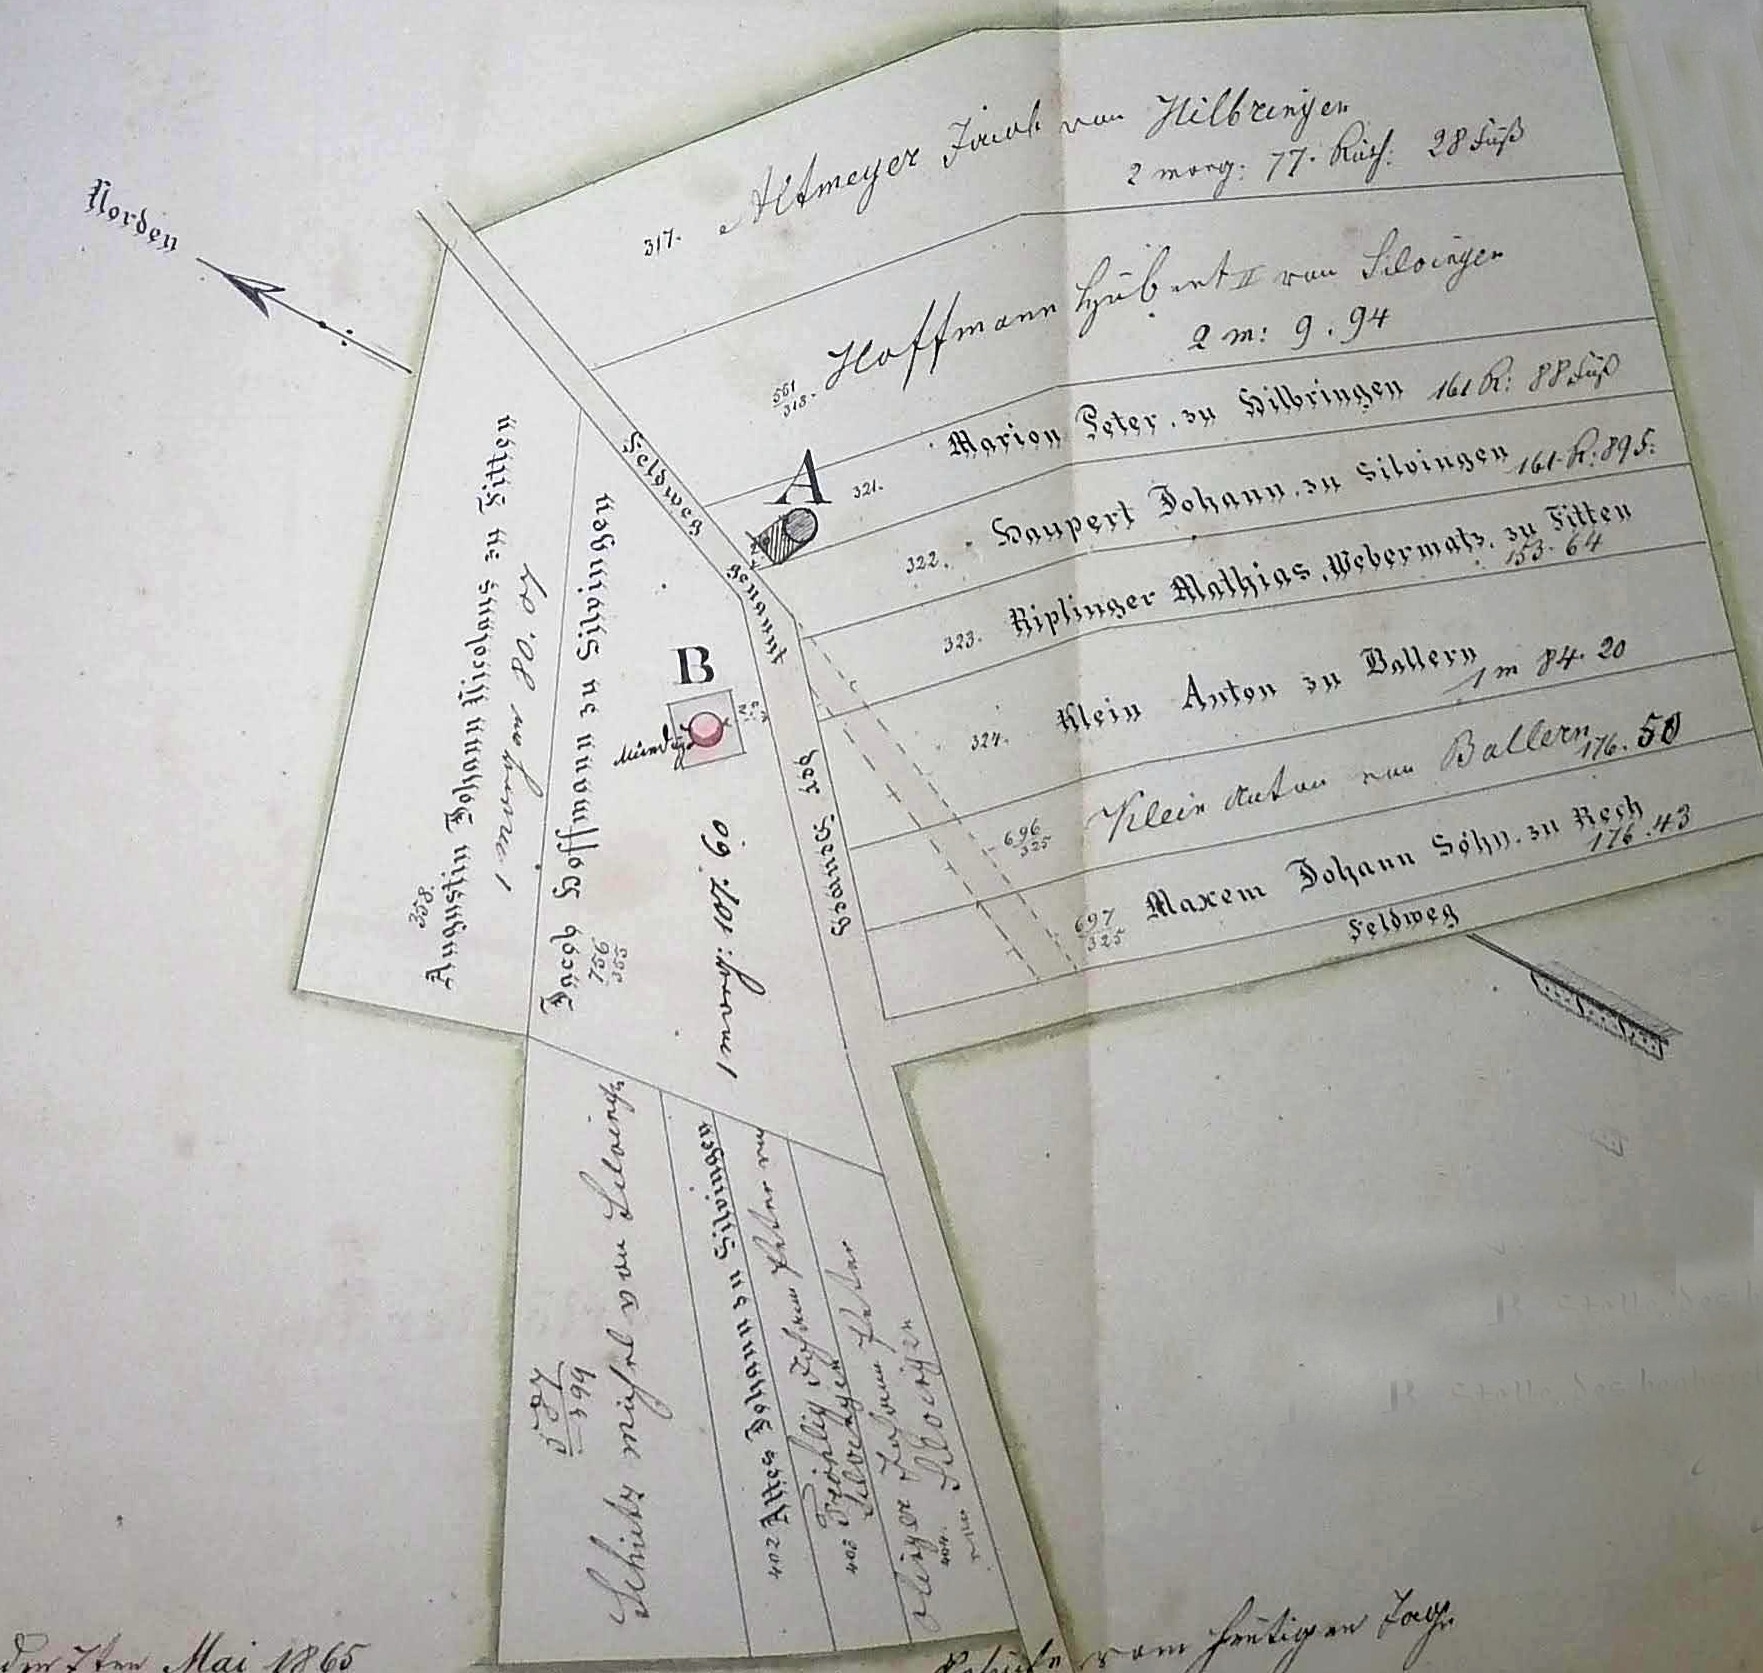 Norden
317. Altmeyer Jacob von Hilbringen
2 morg: 77. Ruth: 28 Fuß
561/318. Hoffmann Hubert II von Silvingen
2 m: 9. 94
321. Marion Peter. zu Hilbringen 161 R: 88 Fuß
322. Haupert Johann. zu Silvingen 161. R: 895:
323. Riplinger Mathias, Webermatz. zu Fitten
153. 64
324. Klein Anton zu Ballern
1 m 84. 20
696/325 Klein Anton von Ballern
176. 50
697/325 Maxem Johann Söhn. zu Rech
176. 43
Feldweg
Feldweg genannt der Grauweg
A
B
358.
Augustin Johann Nicolaus zu Fitten
1 morgen
Jacob Hoffmann zu Silvingen
756/355
1 morg:
399
Schütz Michel von Silvingen
402 Altes Johann zu Silvingen
403 Fröhlig Johann Peter von
Silvingen
Johann Peter
404. Silvingen
den 7ten Mai 1865
vom heutigen Tage